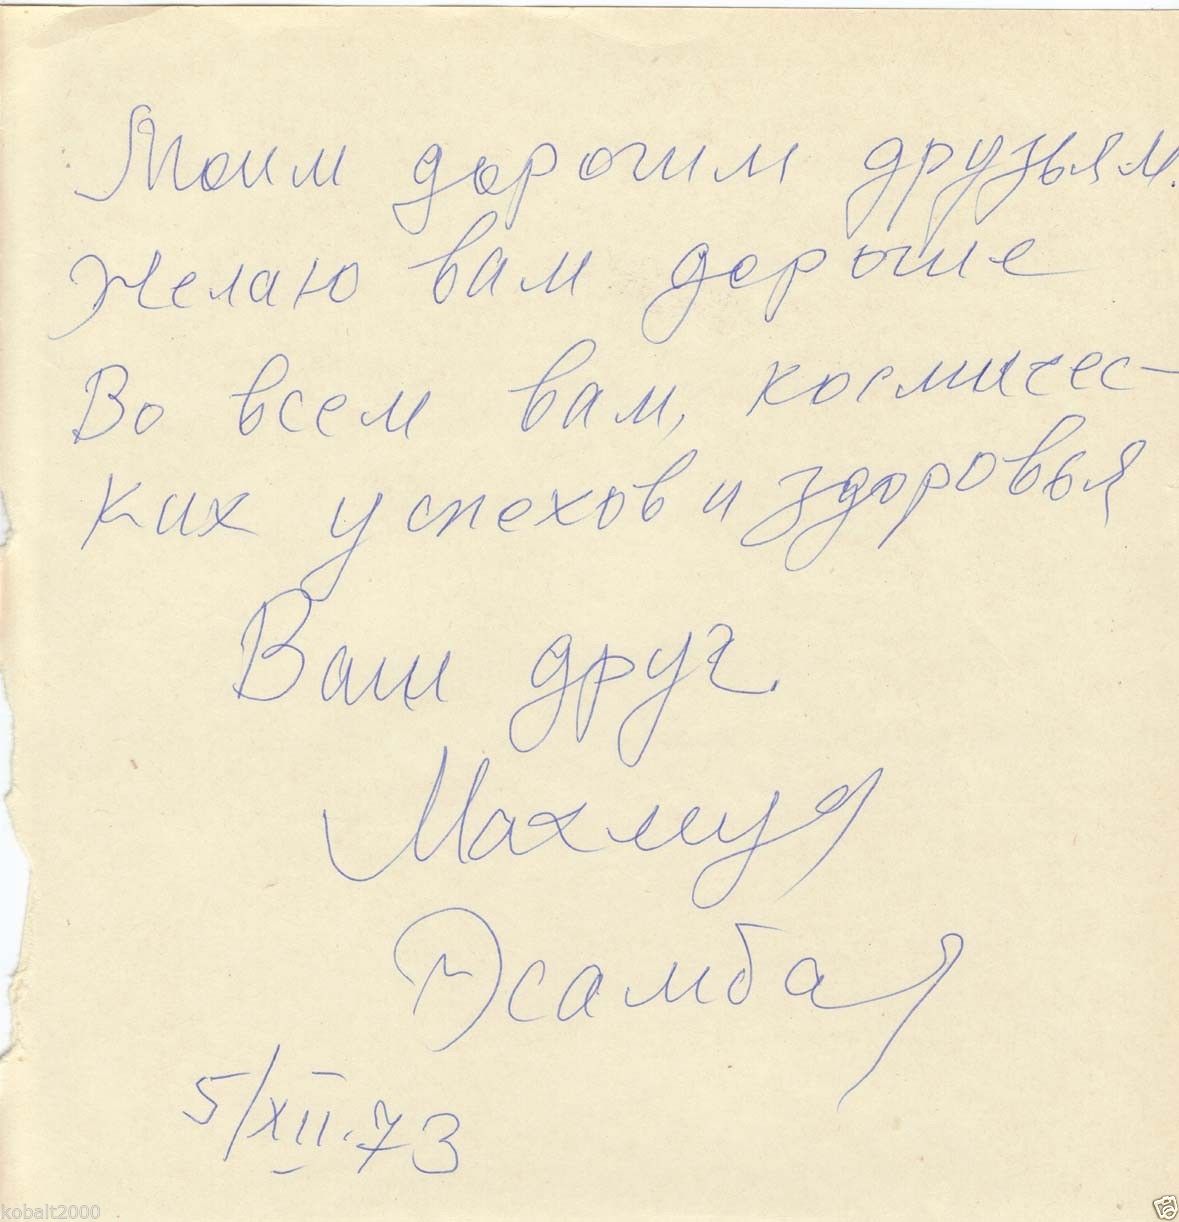 Моим дорогим друзьям.
Желаю вам дорогие
Во всем вам, космичес-
ких успехов и здоровья
Ваш друг.
Махмуд
Эсамбаев
5/XII.73
kobalt2000